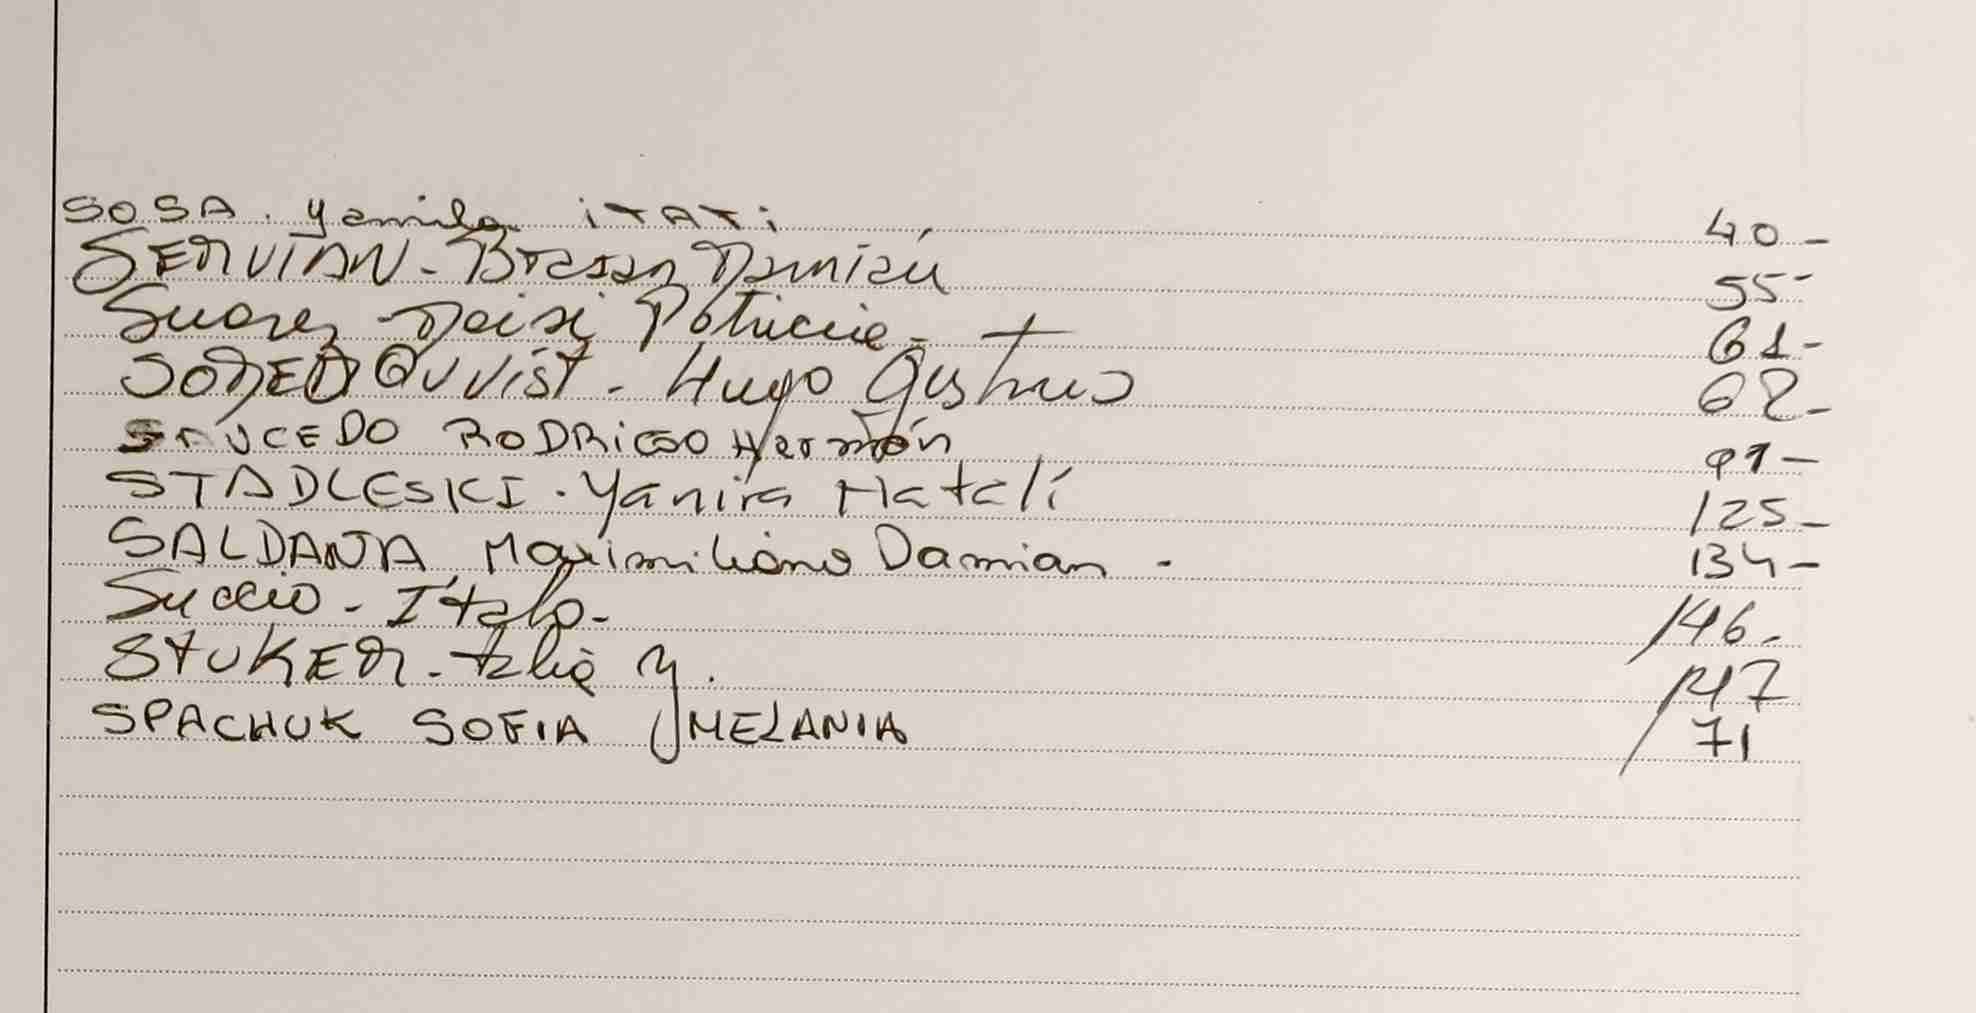 SOSA. Yamila iTATi 40-
SERVIAN - Braian Damián 55-
Suarez Deisi Patricia - 61-
SODERQUVIST - Hugo Gustavo 62-
SAUCEDO RODRIGO Hernán 91-
STADLESKI - Yanira Natalí 125-
SALDANA, Maximiliano Damian - 134-
Succio - Italo - 146-
STUKER - M. 147
SPACHUK SOFIA MELANIA 71